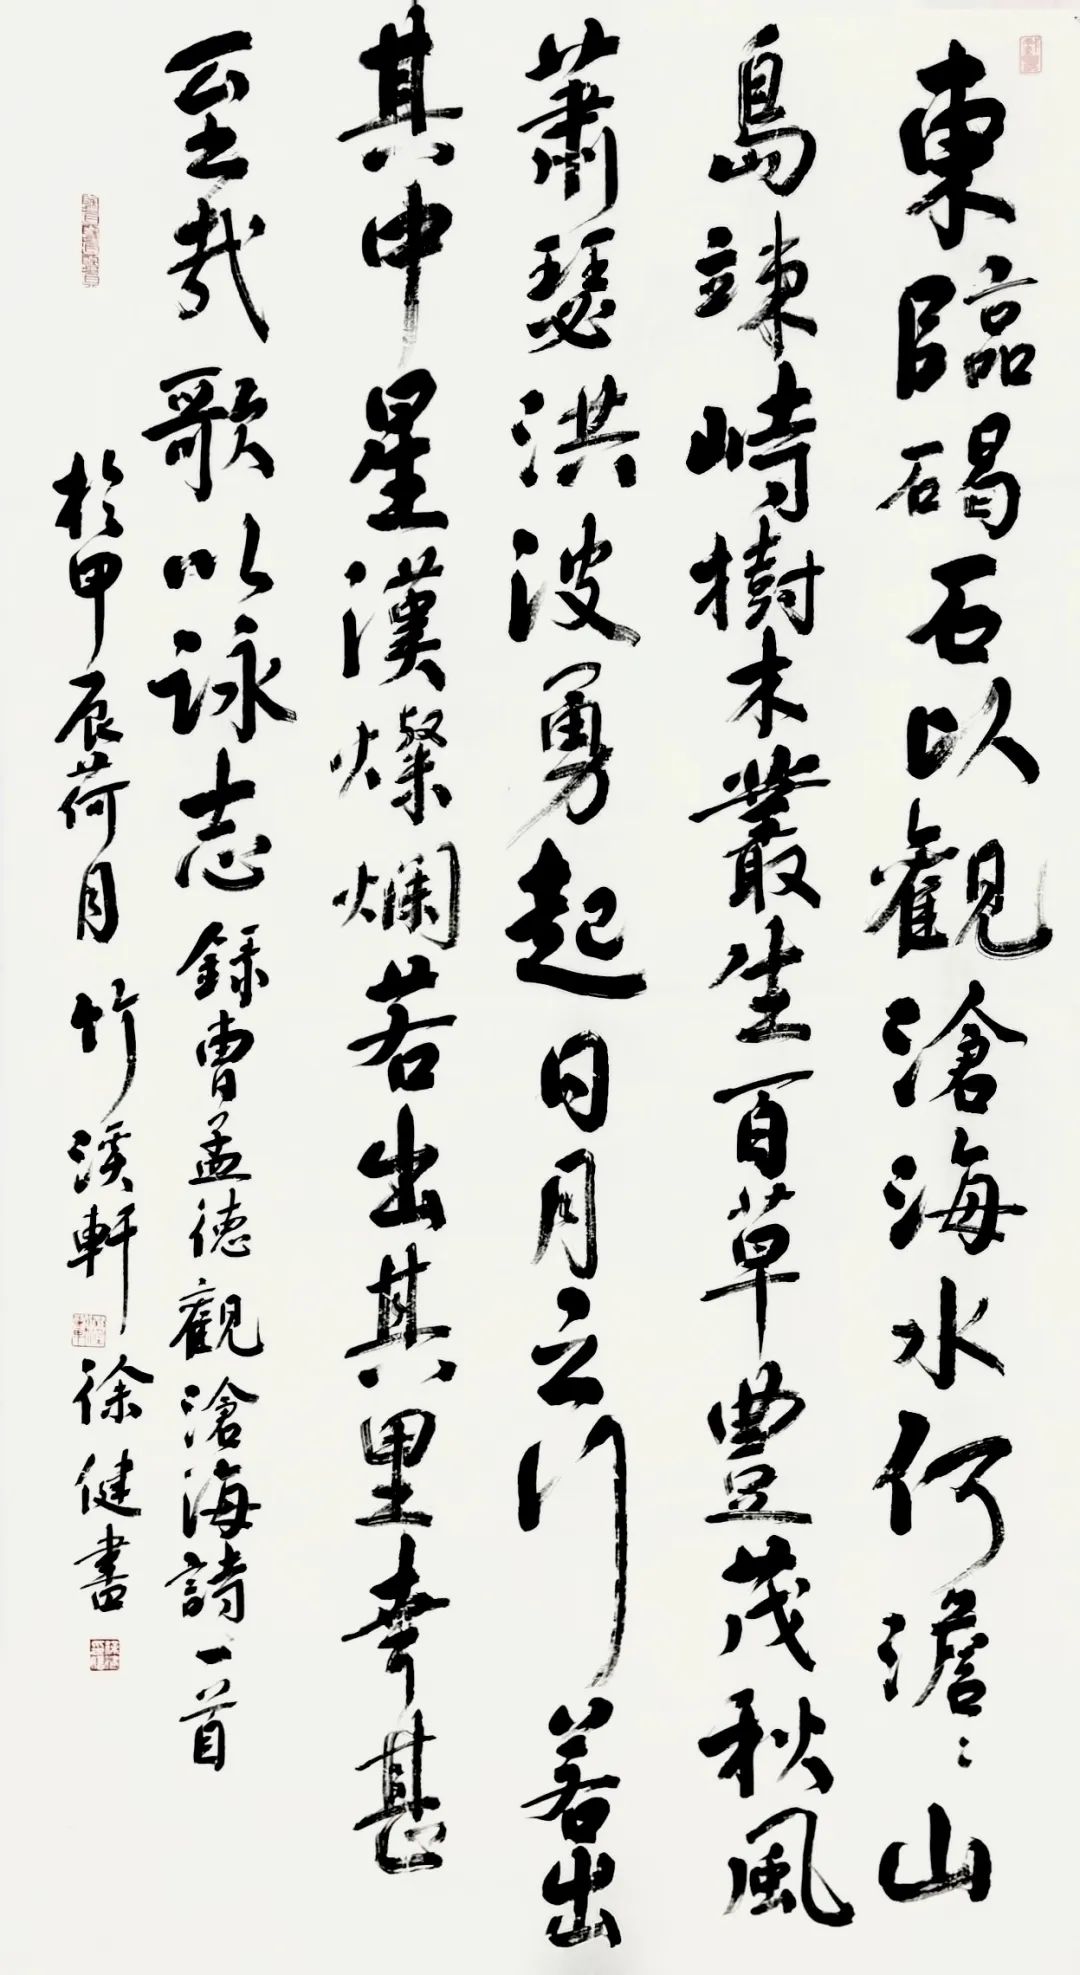 東臨碣石以觀滄海水何澹〻山
島竦峙樹木叢生百草豐茂秋風
蕭瑟洪波勇起日月之门若出
其中星漢燦爛若出其里幸甚
至哉歌以詠志錄曹孟德觀滄海詩一首
於甲辰荷月竹溪軒徐健書